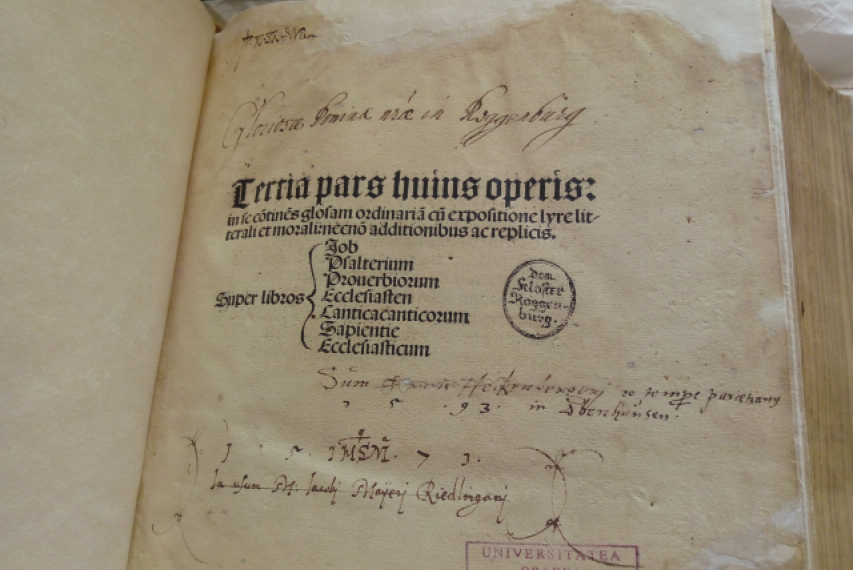 Gloriosæ Dominæ nræ in Roggenburg
Tertia pars huius operis:
in se cõtinẽs glosam ordinariã cũ expositione lyre lit-
terali et morali: necnõ additionibus ac replicis.
Super libros
Job
Psalterium
Prouerbiorum
Ecclesiasten
Canticacanticorum
Sapientie
Ecclesiasticum
Dem
Kloster
Roggen-
burg.
Sum
1 5 . 93 . in
1 . 5 . IMSM̃ . 7 3 .
In usum M. Jacobj Mayerj Riedlinganj
UNIVERSITATEA